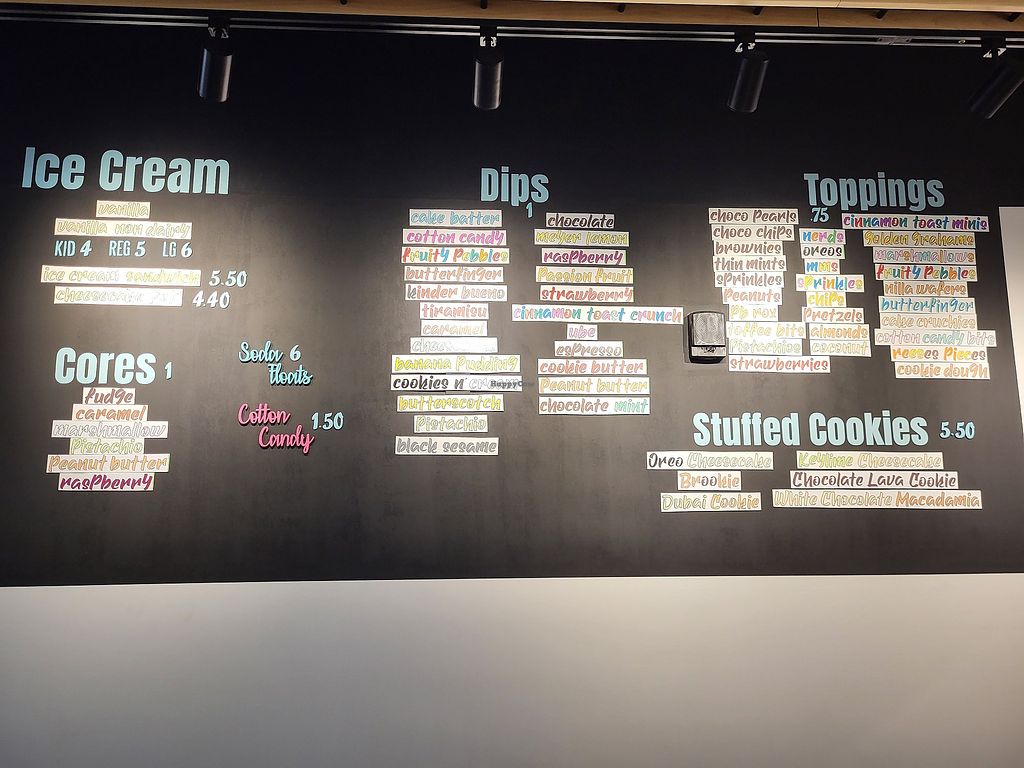 Ice Cream
vanilla
vanilla non dairy
KID 4 REG 5 LG 6
ice cream sandwich 5.50
cheesecake 4.40
Cores 1
fudge
caramel
marshmallow
Pistachio
Peanut butter
rasPberry
Soda 6
floats
Cotton 1.50
Candy
Dips
1
cake batter
cotton candy
fruity Pebbles
butterfinger
kinder bueno
tiramisu
caramel
banana Pudding
cookies n'
butterscotch
Pistachio
black sesame
chocolate
meyer lemon
rasPberry
Passion fruit
strawberry
cinnamon toast crunch
ube
esPresso
cookie butter
Peanut butter
chocolate mint
HappyCow
Toppings
.75
choco Pearls
choco chiPs
brownies
thin mints
sPrinkles
Peanuts
Pb rox
toffee bits
Pistachios
strawberries
nerds
oreos
mms
sPrinkles
chiPs
Pretzels
almonds
coconut
cinnamon toast minis
golden grahams
marshmallows
fruity Pebbles
nilla wafers
butterfinger
cake crunchies
cotton candy bits
reeses Pieces
cookie dough
Stuffed Cookies 5.50
Oreo Cheesecake
Brookie
Dubai Cookie
Keylime Cheesecake
Chocolate Lava Cookie
White Chocolate Macadamia